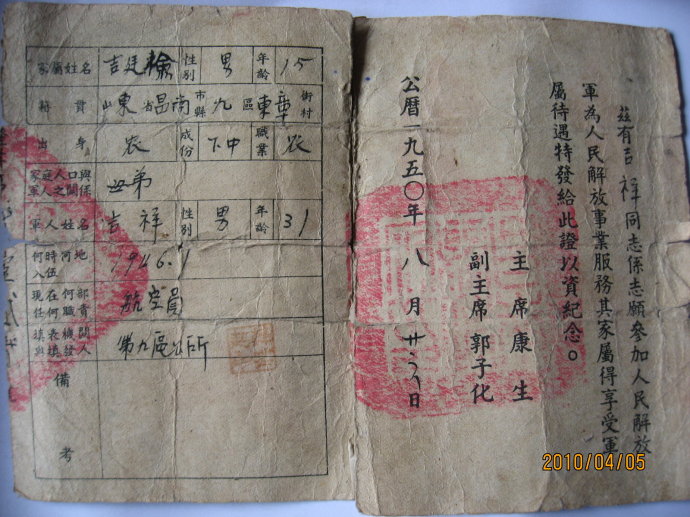 茲有吉祥同志係志願參加人民解放
軍為人民解放事業服務其家屬得享受軍
屬待遇特發給此證以資紀念。
主席康生
副主席郭子化
公曆一九五〇年八月廿六日
家屬姓名 吉廷 性別 男 年齡 15
籍貫 山東省昌南市縣九區東章街村
出身 农 成份 下中 職業 农
家庭人口與軍人之關係 母弟
軍人姓名 吉祥 性別 男 年齡 31
何時何地入伍 1946.1
現在何部任何職 航空員
填表機關與填發責人 第九區公所
備考
2010/04/05